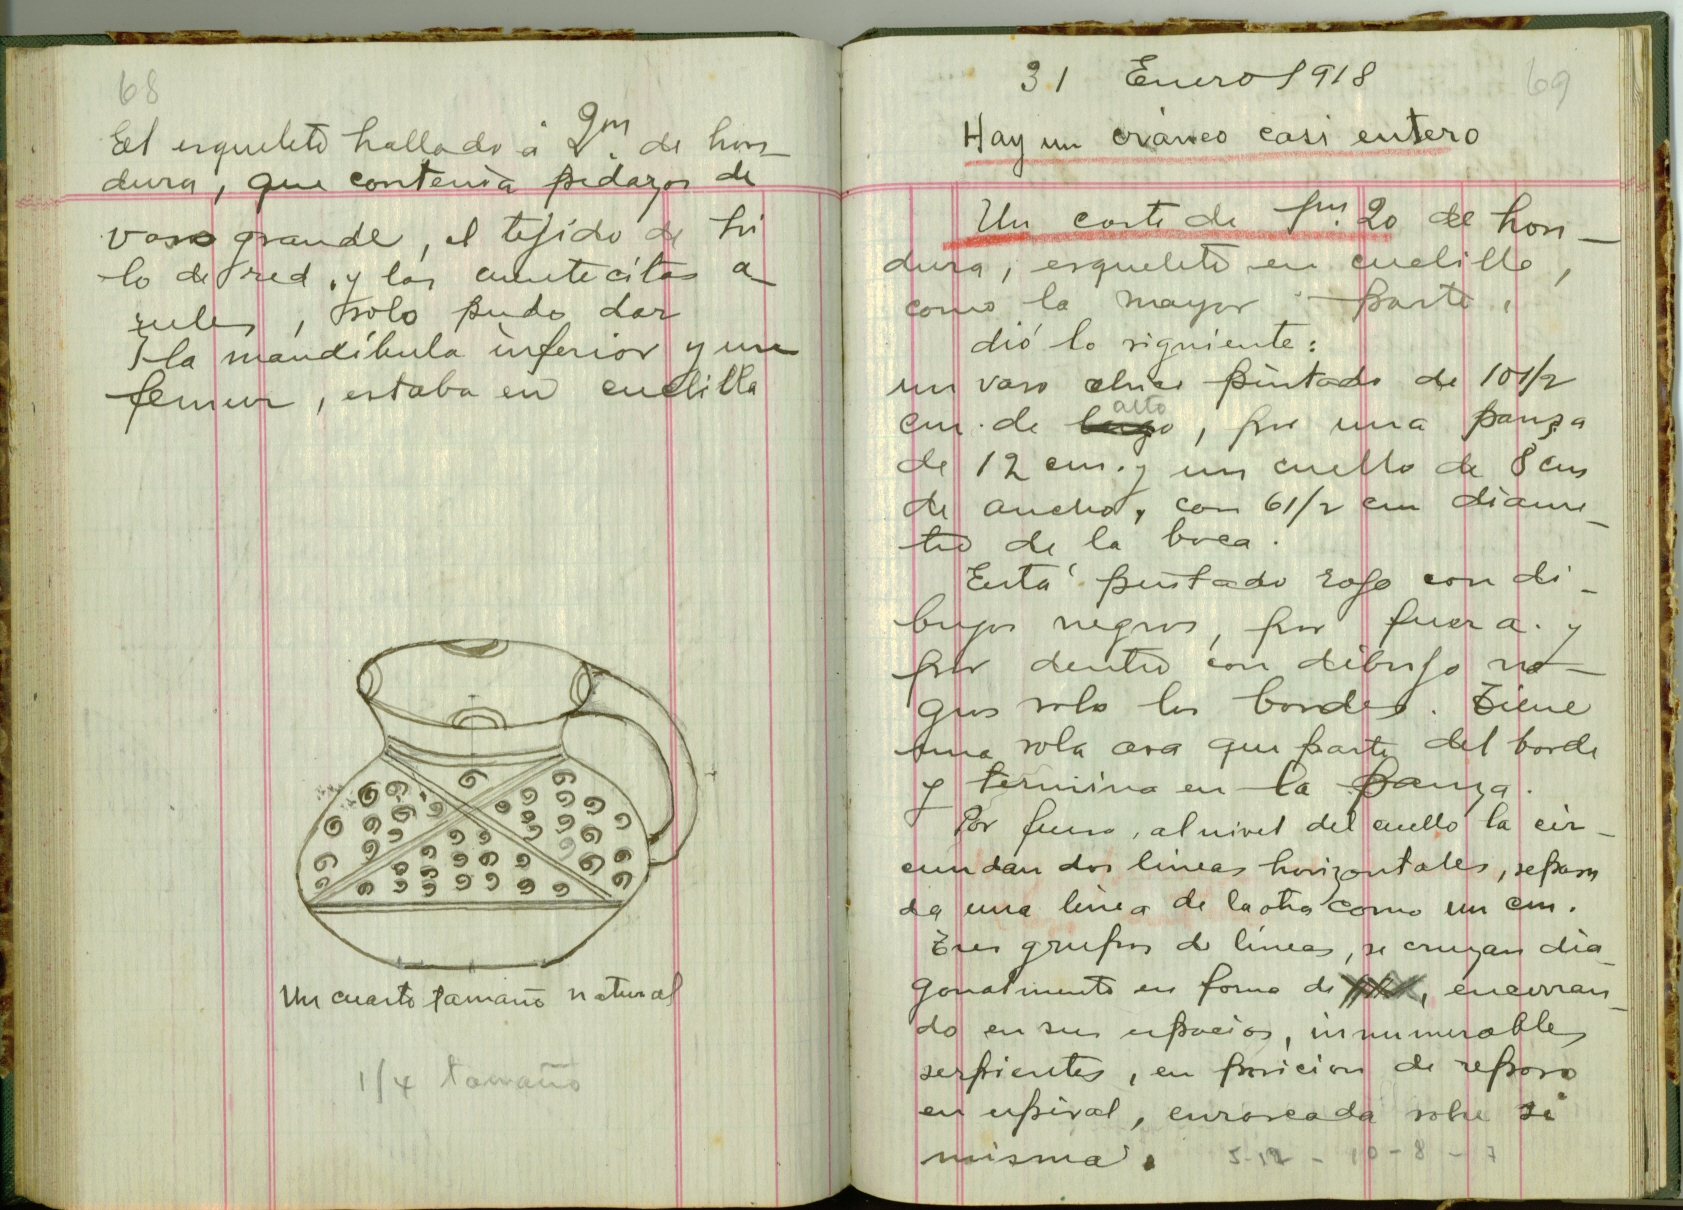 68
El esqueleto hallado á 2m. de hon-
dura, que contenía pedazos de
vaso grande, el tejido de hi
lo de red, y las cuentecitas a-
zules, solo pudo dar
la mandíbula inferior y un
femur, estaba en cuclilla
Un cuarto tamaño natural
1/4 tamaño
31 Enero 1918
69
Hay un cráneo casi entero
Un corte de 1m. 20 de hon-
dura, esqueleto en cuclilla,
como la mayor parte,
dió lo siguiente:
un vaso chico pintado de 10 1/2
cm. de largo alto, por una panza
de 12 cm. y un cuello de 8 cm
de ancho, con 6 1/2 cm diame-
tro de la boca.
Está pintado rojo con di-
bujos negros, por fuera. y
por dentro con dibujo ne-
gros solo los bordes. Tiene
una sola asa que parte del borde
y termina en la panza.
Por fuera, al nivel del cuello la cir-
cundan dos lineas horizontales, separa
da una línea de la otra como un cm.
Tres grupos de líneas, se cruzan dia-
gonalmente en forma de XXX, encerran-
do en sus espacios, innumerables
serpientes, en posicion de reposo
en espiral, enroscada sobre si
misma.
5-12 - 10-8 - 7